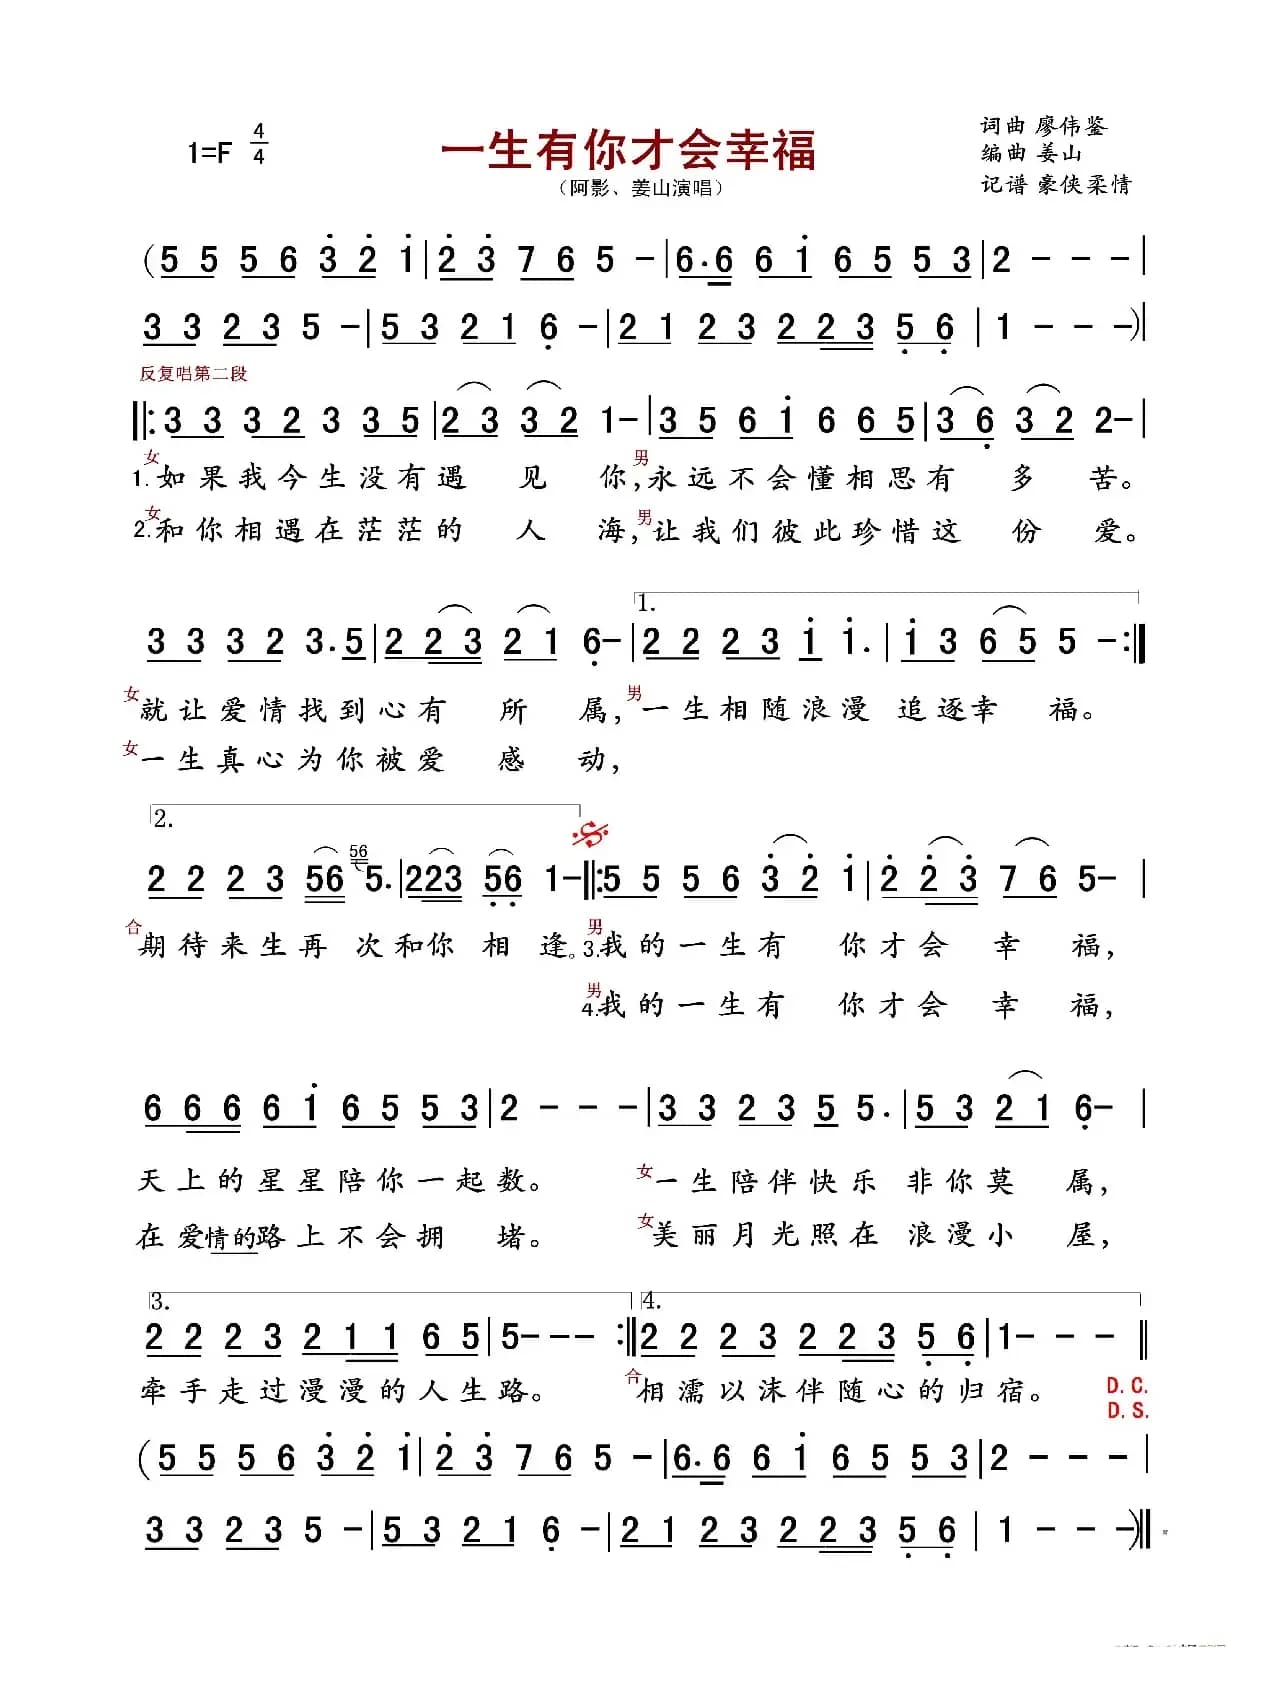 1=F 4/4
一生有你才会幸福
（阿影、姜山演唱）
词曲 廖伟鉴
编曲 姜山
记谱 豪侠柔情
(5 5 5 6 3̇ 2̇ 1̇ | 2̇ 3̇ 7 6 5 - | 6. 6 6 1̇ 6 5 5 3 | 2 - - - |
3 3 2 3 5 - | 5 3 2 1 6̣ - | 2 1 2 3 2 2 3 5̣ 6̣ | 1 - - -)|
反复唱第二段
‖: 3 3 3 2 3 3 5 | 2 3 3 2 1 - | 3 5 6 1̇ 6 6 5 | 3 6̣ 3 2 2 - |
女 男
1.如果我今生没有遇见你,永远不会懂相思有多苦。
女 男
2.和你相遇在茫茫的人海,让我们彼此珍惜这份爱。
1.
3 3 3 2 3. 5 | 2 2 3 2 1 6̣ - | 2 2 2 3 1̇ 1̇. | 1̇ 3 6 5 5 - :‖
女就让爱情找到心有所属,男一生相随浪漫追逐幸福。
女一生真心为你被爱感动,
2.
2 2 2 3 56 56 5. | 2 2 3 5̣ 6̣ 1 - ‖: 5 5 5 6 3̇ 2̇ 1̇ | 2̇ 2̇ 3̇ 7 6 5 - |
合期待来生再次和你相逢。男3.我的一生有你才会幸福,
男4.我的一生有你才会幸福,
6 6 6 6 1̇ 6 5 5 3 | 2 - - - | 3 3 2 3 5 5. | 5 3 2 1 6̣ - |
天上的星星陪你一起数。女一生陪伴快乐非你莫属,
在爱情的路上不会拥堵。女美丽月光照在浪漫小屋,
3. 4.
2 2 2 3 2 1 1 6 5 | 5 - - - :‖ 2 2 2 3 2 2 3 5̣ 6̣ | 1 - - - ‖
牵手走过漫漫的人生路。合相濡以沫伴随心的归宿。 D. C.
D. S.
(5 5 5 6 3̇ 2̇ 1̇ | 2̇ 3̇ 7 6 5 - | 6. 6 6 1̇ 6 5 5 3 | 2 - - - |
3 3 2 3 5 - | 5 3 2 1 6̣ - | 2 1 2 3 2 2 3 5̣ 6̣ | 1 - - -)‖